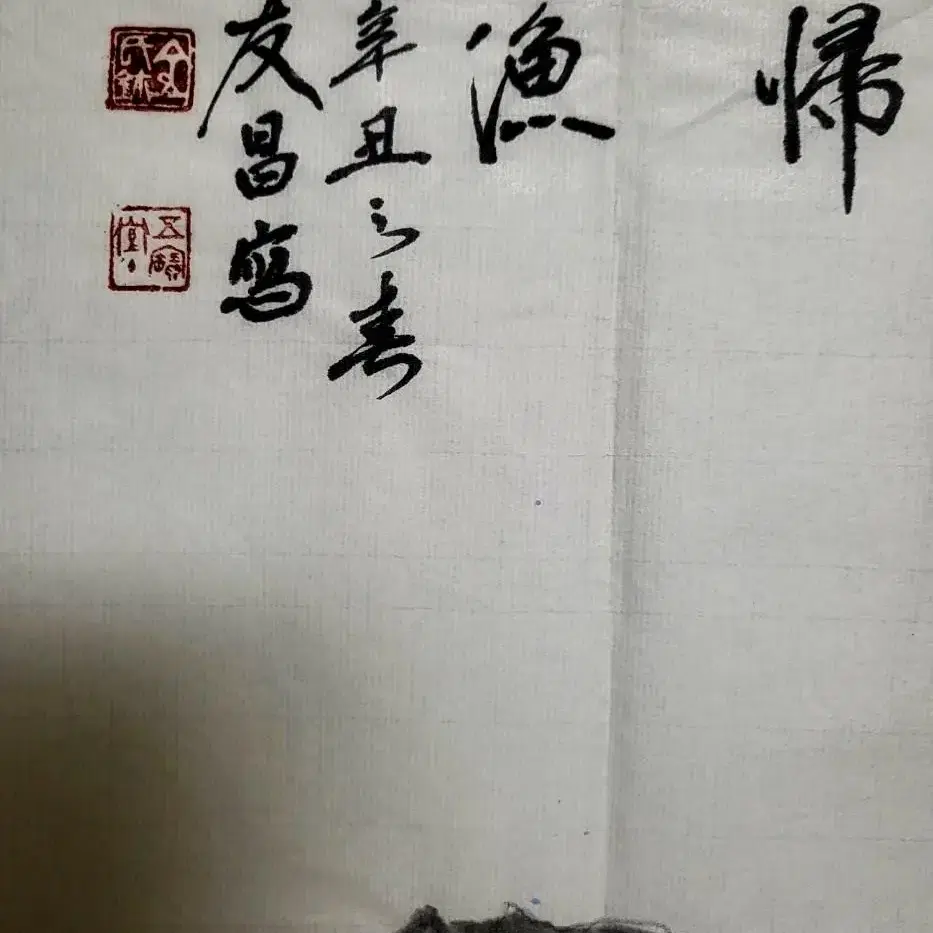 帰
漁
辛丑之春
友昌寫